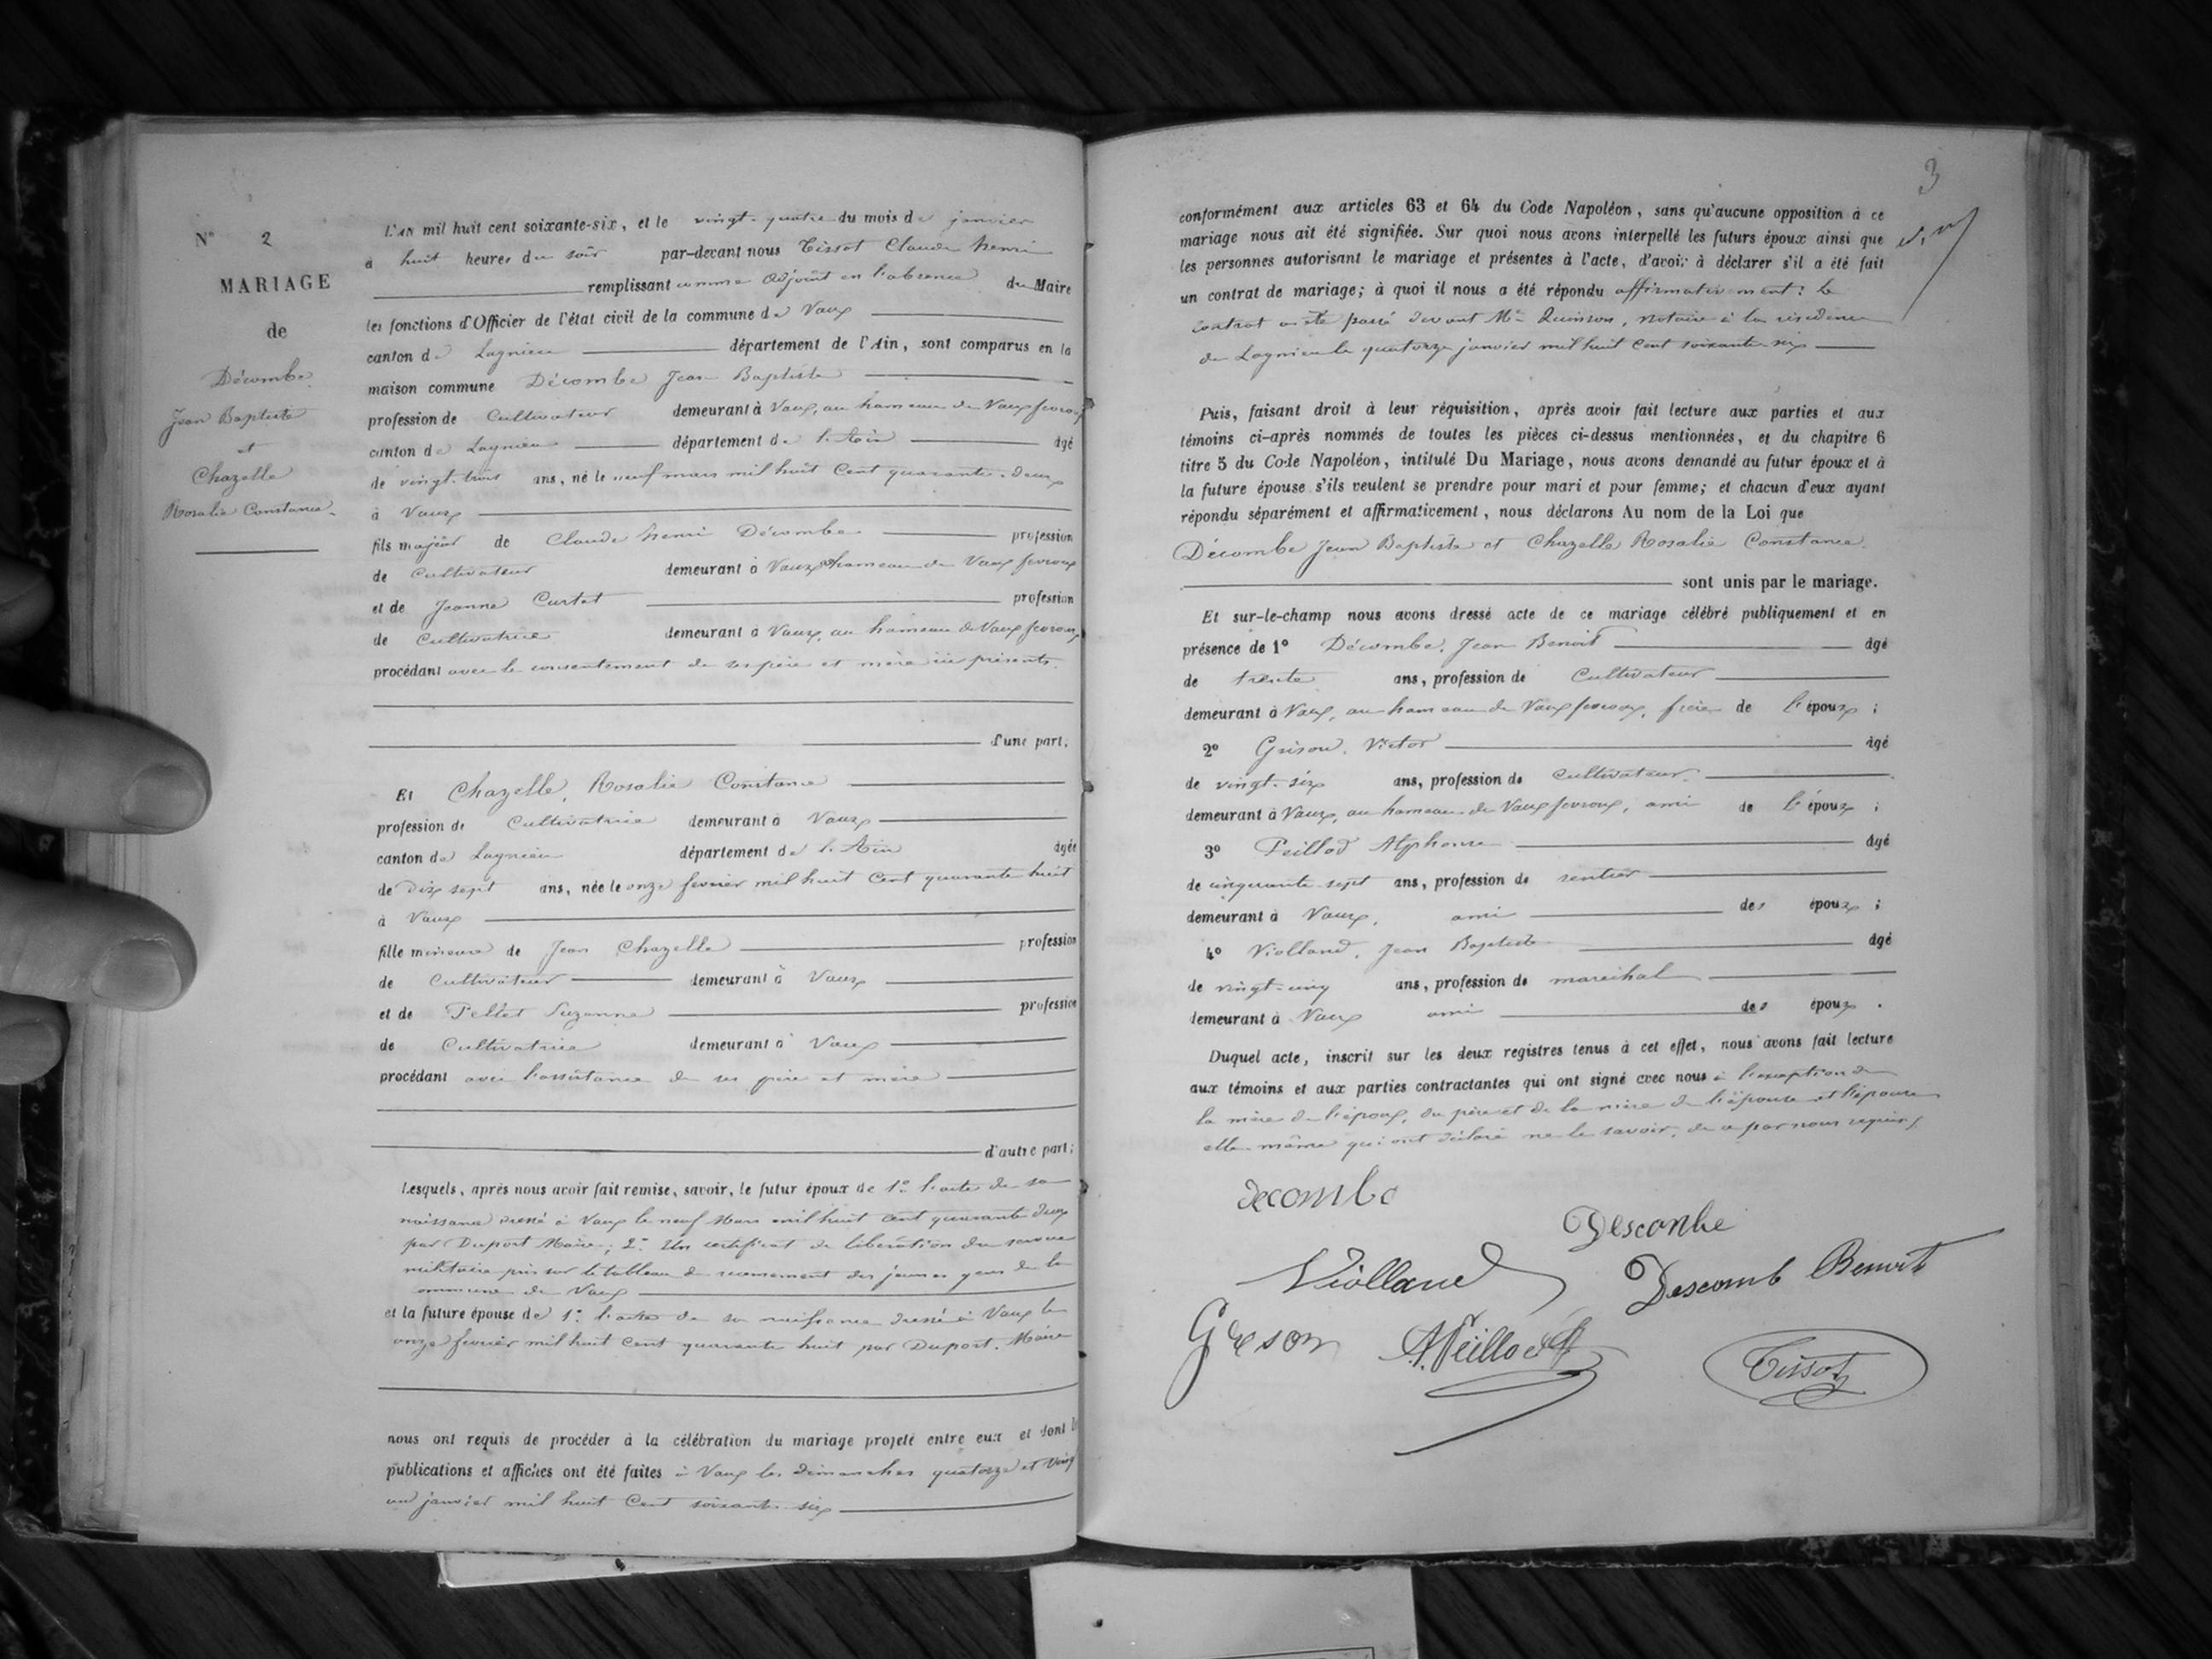 N° 2
MARIAGE
de
Décombe
Jean Baptiste
et
Chazelle
Rosalie Constance.
L'AN mil huit cent soixante-six, et le vingt-quatre du mois de janvier
à huit heures du soir par-devant nous Tissot Claude henri
remplissant comme adjoint en l'absence du Maire
les fonctions d'Officier de l'état civil de la commune de Vaux
canton de Lagnieu département de l'Ain, sont comparus en la
maison commune Décombe Jean Baptiste
profession de Cultivateur demeurant à Vaux, au hameau de Vauxfevroux
canton de Lagnieu département de l'Ain âgé
de vingt-trois ans, né le neuf mars mil huit Cent quarante-deux
à Vaux
fils majeur de Claude henri Décombe profession
de Cultivateur demeurant à Vaux hameau de Vauxfevroux
et de Jeanne Curtet profession
de Cultivatrice demeurant à Vaux, au hameau de Vauxfevroux
procédant avec le consentement de ses père et mère ici présents.
d'une part.
Et Chazelle, Rosalie Constance
profession de Cultivatrice demeurant à Vaux
canton de Lagnieu département de l'Ain âgée
de dix sept ans, née le onze fevrier mil huit Cent quarante huit
à Vaux
fille mineure de Jean Chazelle profession
de Cultivateur demeurant à Vaux
et de Pellet Suzanne profession
de Cultivatrice demeurant à Vaux
procédant avec l'assistance de ses père et mère
d'autre part;
Lesquels, après nous avoir fait remise, savoir, le futur époux de 1° l'acte de sa
naissance dressé à Vaux le neuf Mars mil huit cent quarante deux
par Duport Maire; 2° Un certificat de libération du service
militaire pris sur le tableau de recensement des jeunes gens de la
commune de Vaux
et la future épouse de 1° l'acte de sa naissance dressé à Vaux le
onze fevrier mil huit Cent quarante huit par Duport. Maire
nous ont requis de procéder à la célébration du mariage projeté entre eux et dont les
publications et affiches ont été faites à Vaux les dimanches quatorze et vingt
un janvier mil huit Cent soixante-six
3
conformément aux articles 63 et 64 du Code Napoléon, sans qu'aucune opposition à ce
mariage nous ait été signifiée. Sur quoi nous avons interpellé les futurs époux ainsi que
les personnes autorisant le mariage et présentes à l'acte, d'avoir à déclarer s'il a été fait
un contrat de mariage; à quoi il nous a été répondu affirmativement: le
contrat a été passé devant Me Quinson, notaire à la résidence
de Lagnieu le quatorze janvier mil huit Cent soixante six
Puis, faisant droit à leur réquisition, après avoir fait lecture aux parties et aux
témoins ci-après nommés de toutes les pièces ci-dessus mentionnées, et du chapitre 6
titre 5 du Code Napoléon, intitulé Du Mariage, nous avons demandé au futur époux et à
la future épouse s'ils veulent se prendre pour mari et pour femme; et chacun d'eux ayant
répondu séparément et affirmativement, nous déclarons Au nom de la Loi que
Décombe Jean Baptiste et Chazelle Rosalie Constance.
sont unis par le mariage.
Et sur-le-champ nous avons dressé acte de ce mariage célébré publiquement et en
présence de 1° Décombe, Jean Benoit âgé
de trente ans, profession de Cultivateur
demeurant à Vaux, au hameau de Vauxfevroux, frère de l'époux;
2° Grison, Victor âgé
de vingt-six ans, profession de Cultivateur.
demeurant à Vaux, au hameau de Vauxfevroux, ami de l'époux;
3° Peillod Alphonse âgé
de cinquante-sept ans, profession de rentier
demeurant à Vaux, ami des époux;
4° Violland, Jean Baptiste âgé
de vingt-cinq ans, profession de maréchal
demeurant à Vaux ami des époux.
Duquel acte, inscrit sur les deux registres tenus à cet effet, nous avons fait lecture
aux témoins et aux parties contractantes qui ont signé avec nous à l'exception de
la mère de l'époux, du père et de la mère de l'épouse et l'épouse
elle-même qui ont déclaré ne le savoir, de ce par nous requis
decombe
Descombe
Violland
Descomb Benoit
Greson
A. Peillod
Tissot